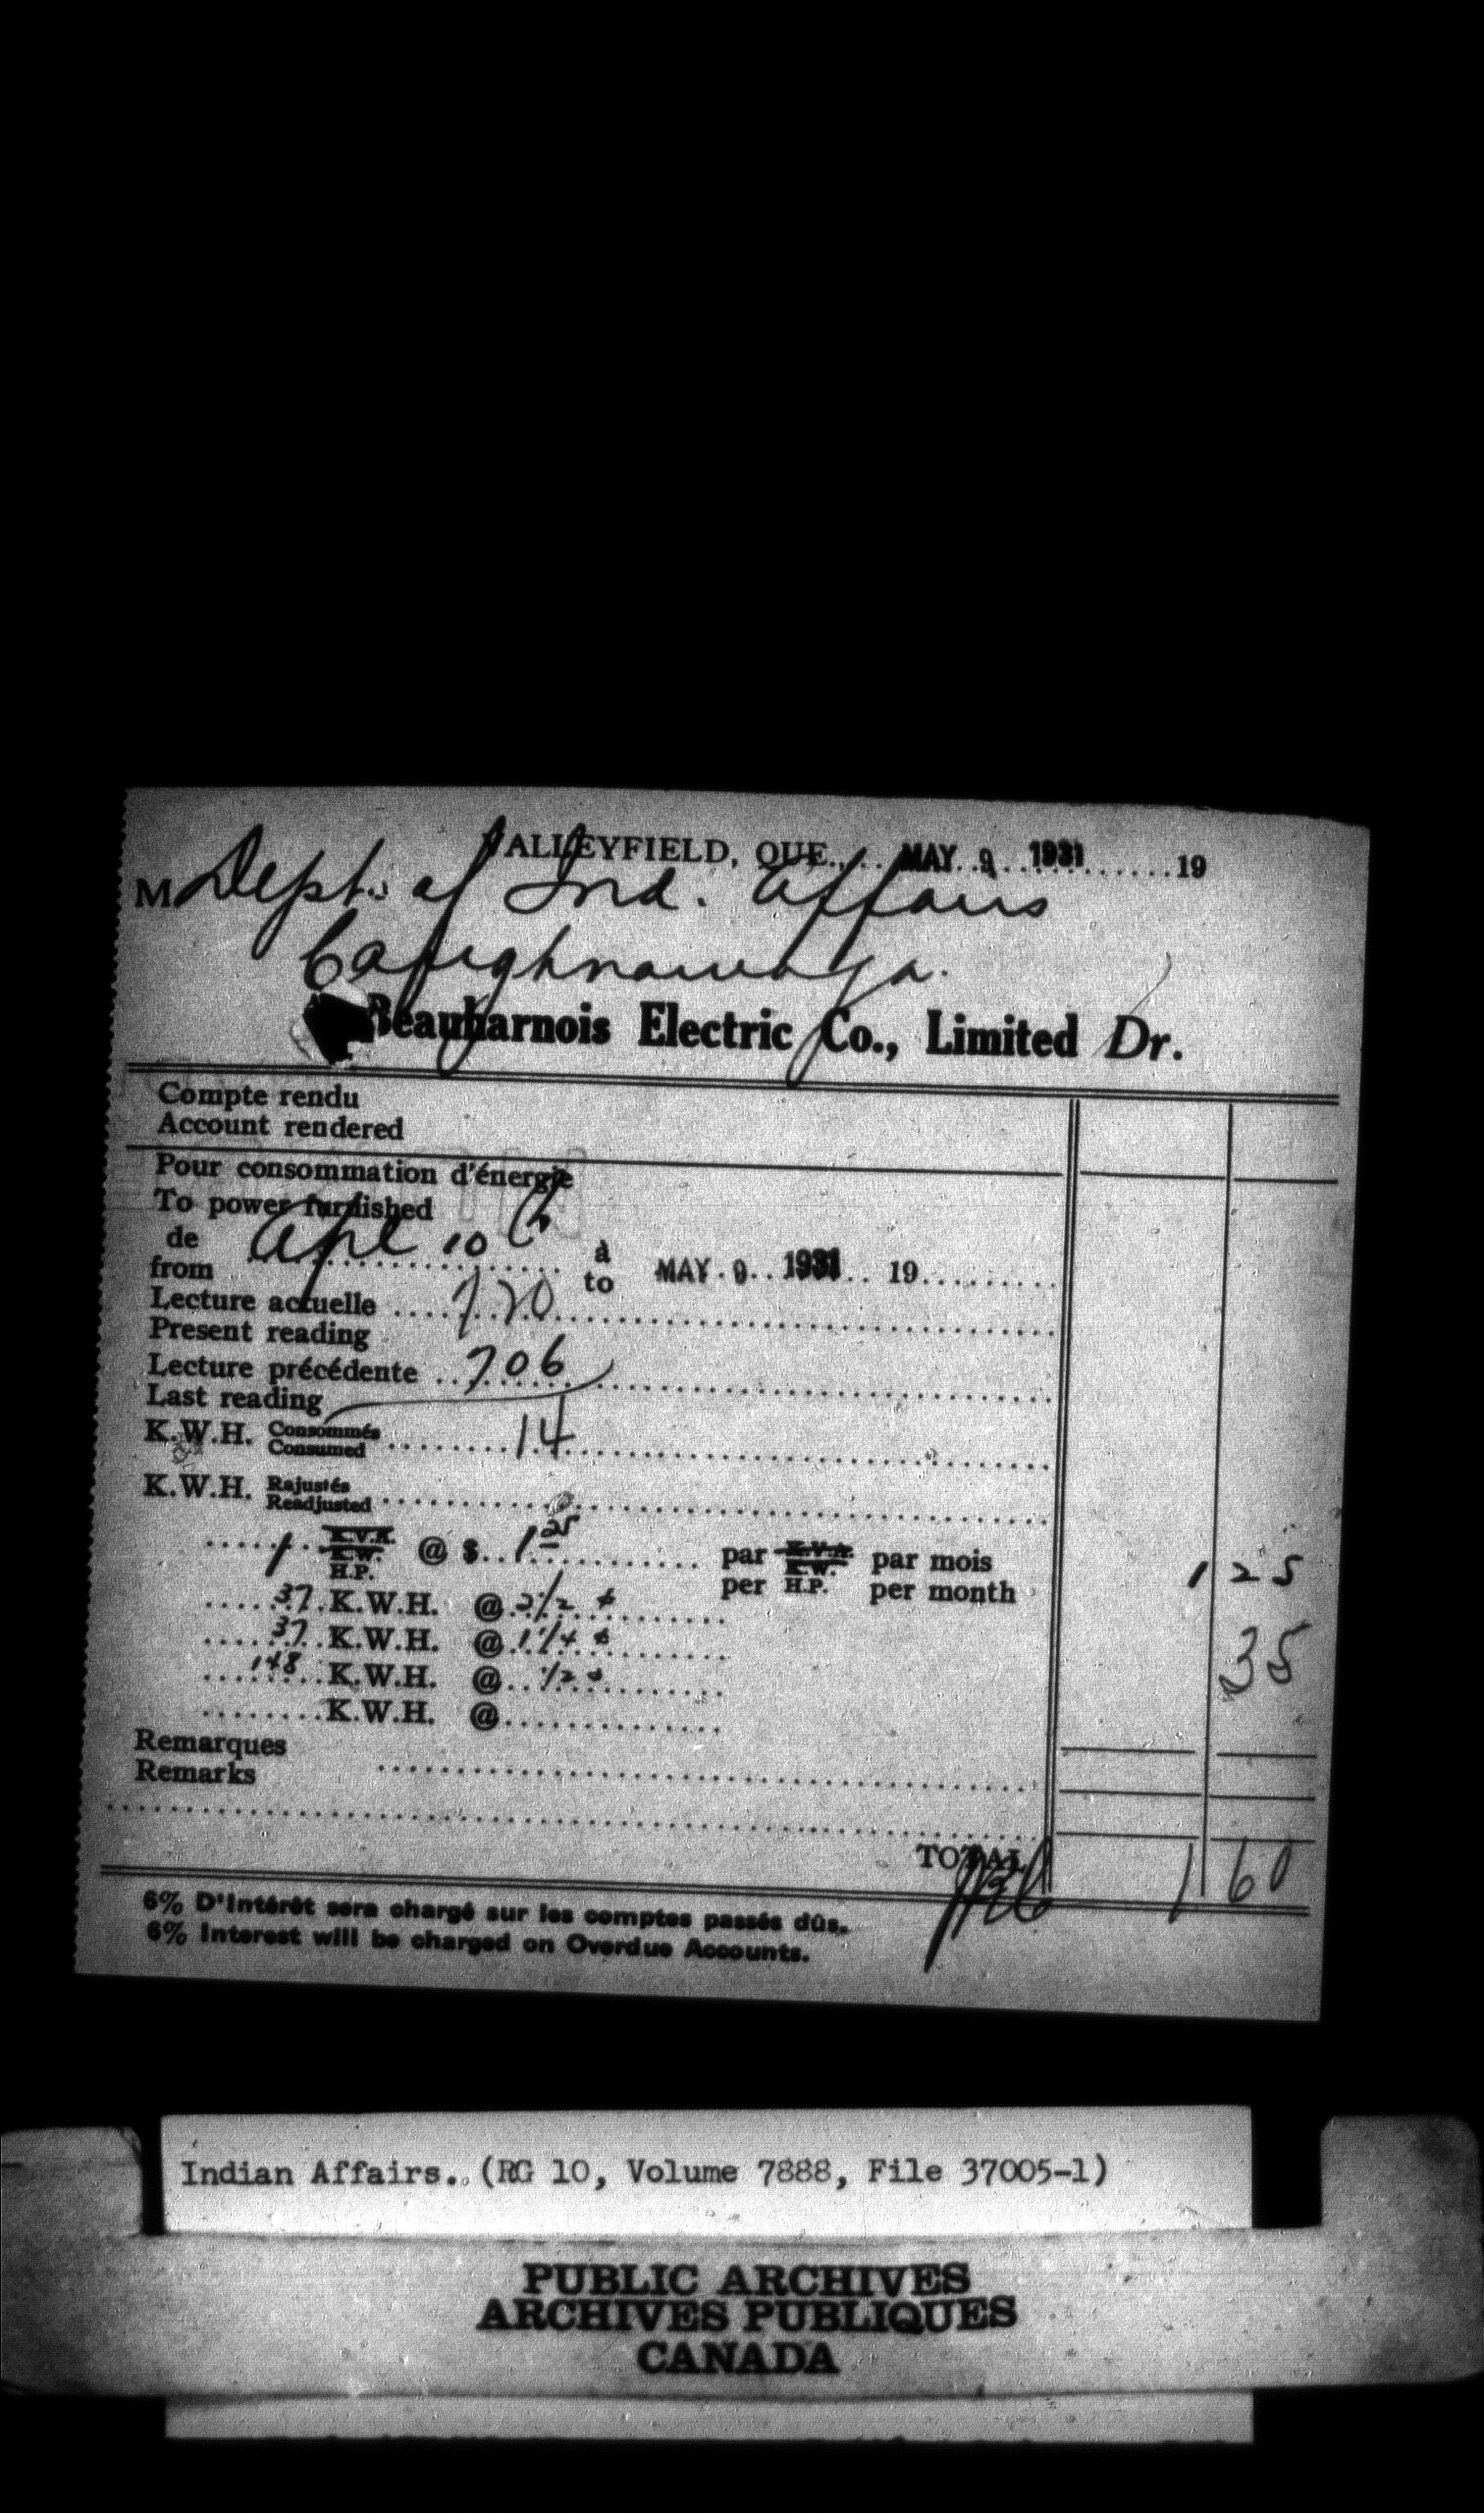 VALLEYFIELD, QUE., MAY 9 1931 19
M Dept. of Ind. Affairs
Caughnawaga.
Beauharnois Electric Co., Limited Dr.
Compte rendu
Account rendered
Pour consommation d'énergie
To power furnished
de
from Apl 10th à
to MAY 9 1931 19
Lecture actuelle 720
Present reading
Lecture précédente 706
Last reading
K.W.H. Consommés
Consumed 14
K.W.H. Rajustés
Readjusted
1 K.V.A.
K.W.
H.P. @ $ 1 25 par
per K.V.A.
K.W.
H.P. par mois
per month 1 25
37 K.W.H. @ 2 1/2 ¢
37 K.W.H. @ 1 1/4 ¢ 35
148 K.W.H. @ 1/2 ¢
K.W.H. @
Remarques
Remarks
TOTAL 1 60
6% D'Intérêt sera chargé sur les comptes passés dûs.
6% Interest will be charged on Overdue Accounts.
Indian Affairs. (RG 10, Volume 7888, File 37005-1)
PUBLIC ARCHIVES
ARCHIVES PUBLIQUES
CANADA